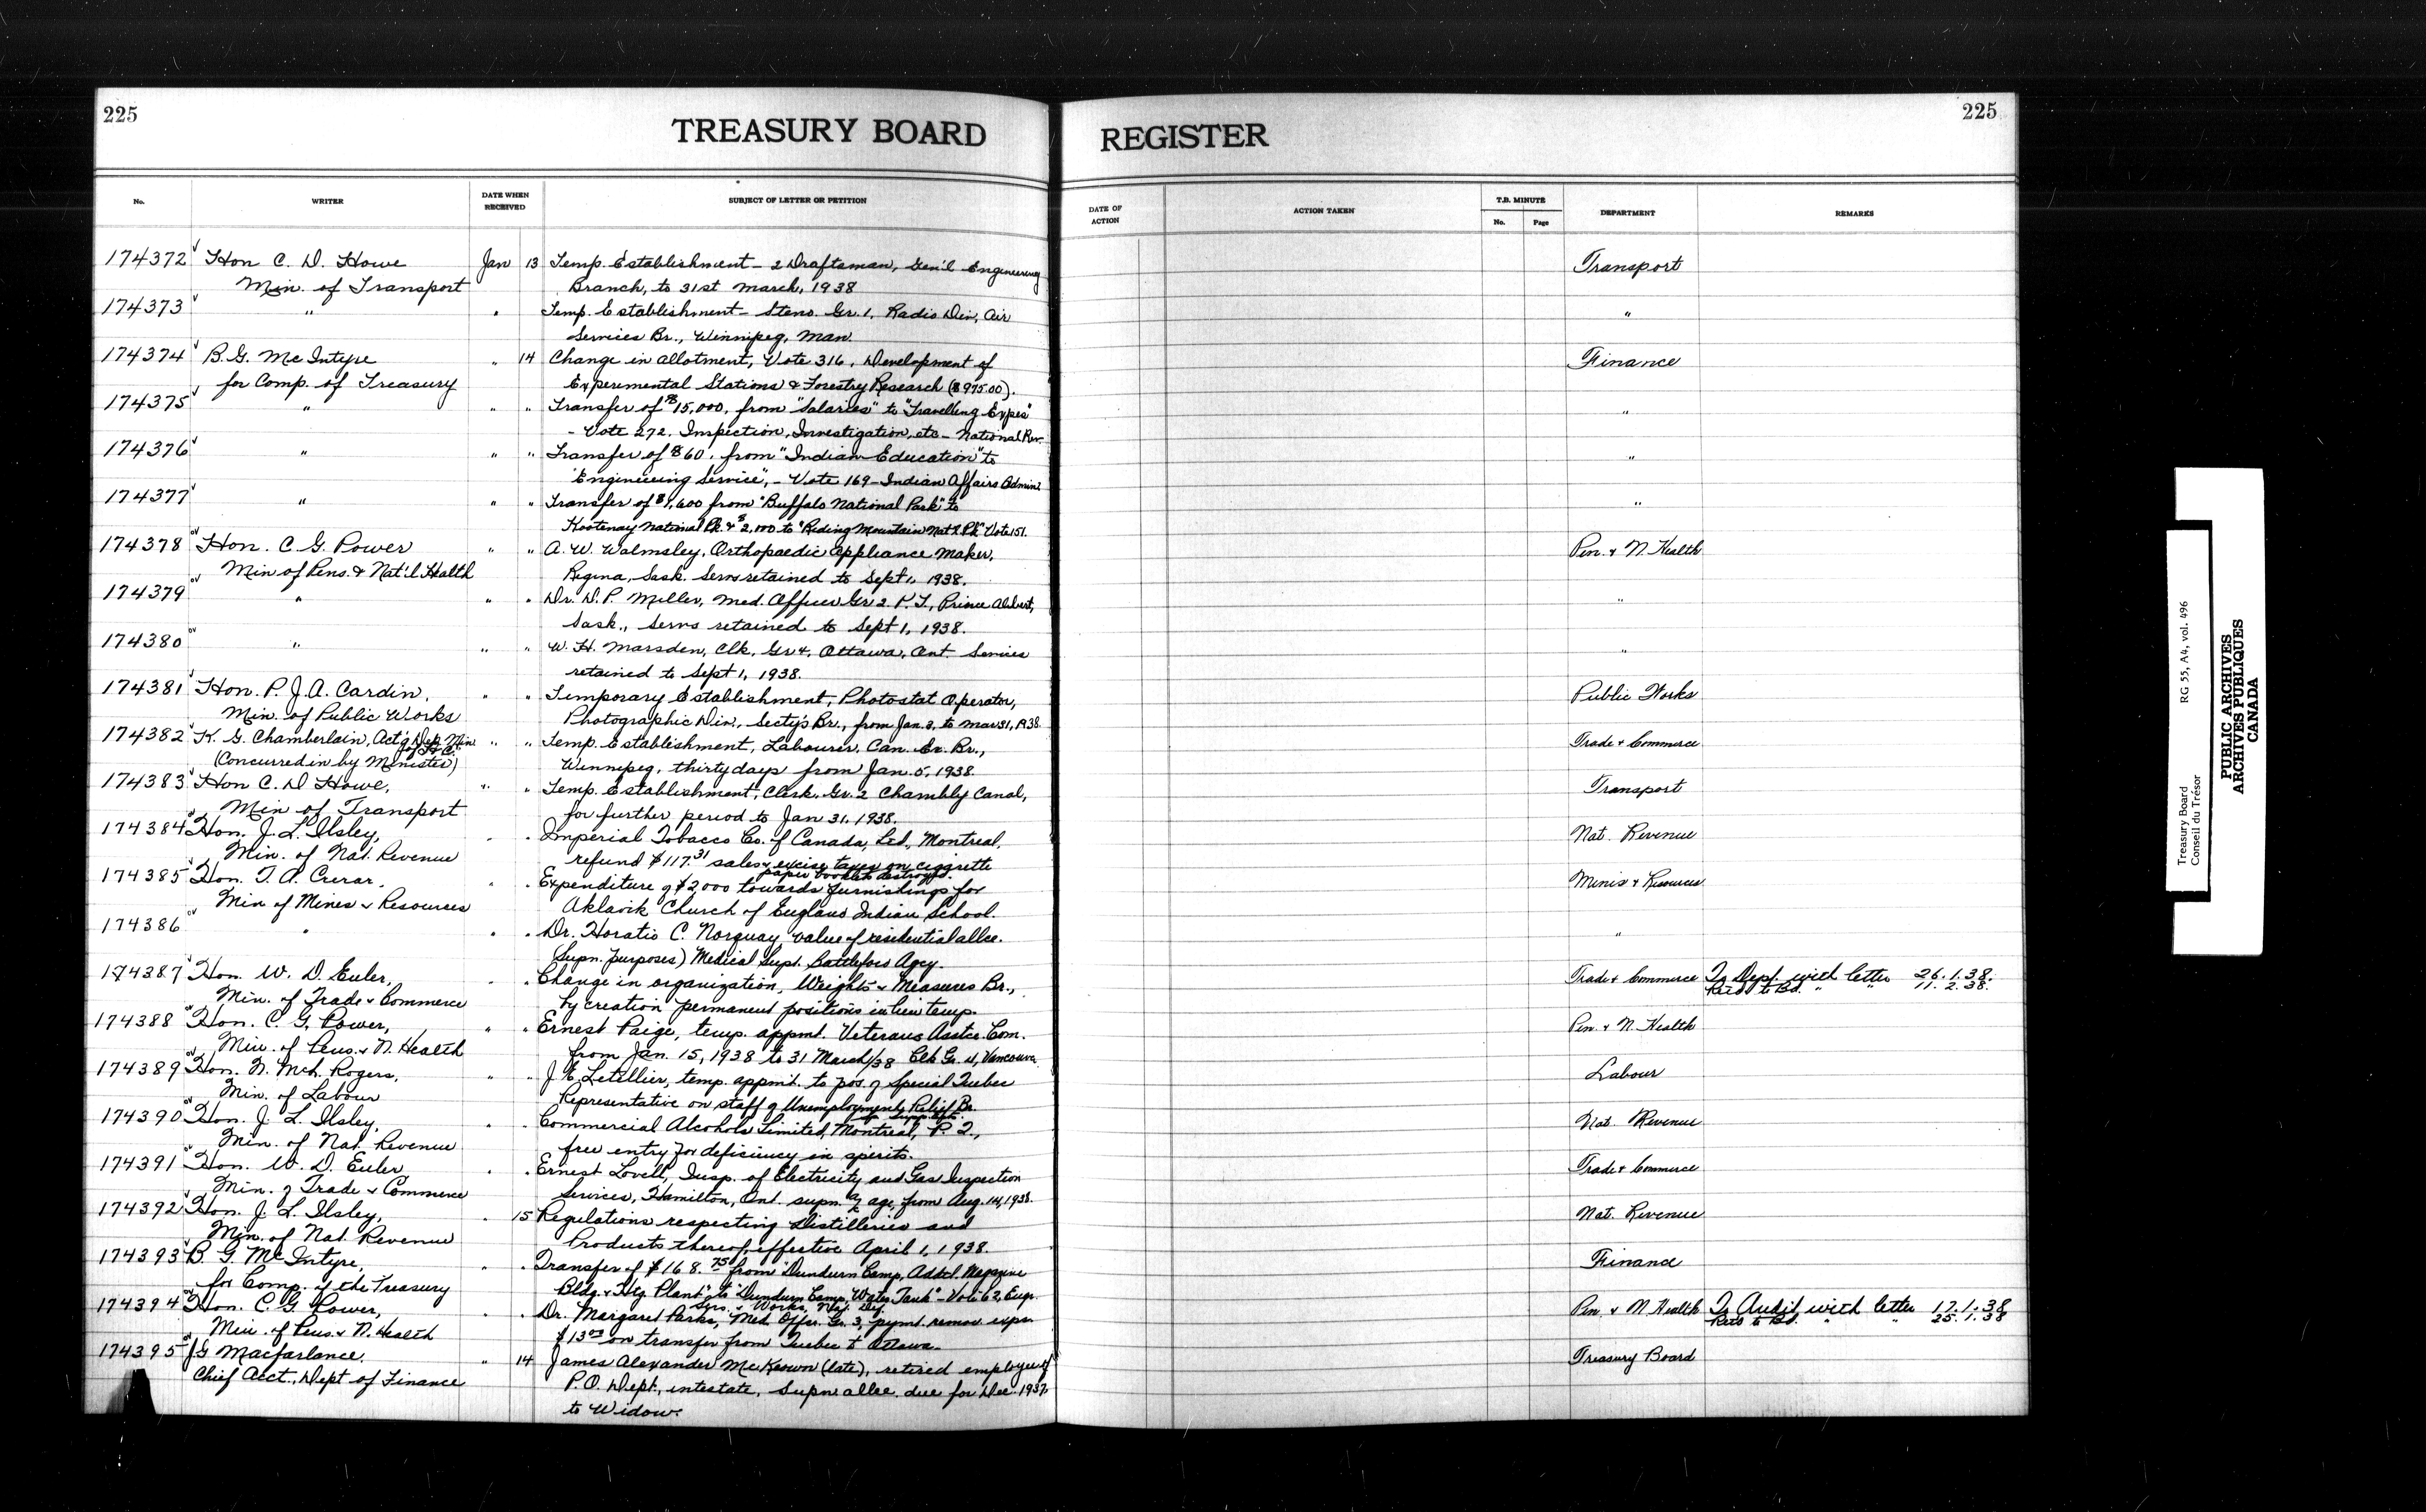 225
TREASURY BOARD
REGISTER
225
No.
WRITER
DATE WHEN RECEIVED
SUBJECT OF LETTER OR PETITION
DATE OF ACTION
ACTION TAKEN
T.B. MINUTE
No.
Page
DEPARTMENT
REMARKS
174372 Hon C. D. Howe Jan 13 Temp. Establishment - 2 Draftsman, Gen'l Engineering Transport
Min. of Transport Branch, to 31st March, 1938
174373 " " Temp. Establishment - Steno. Gr. 1, Radio Div, Air "
Services Br., Winnipeg, Man.
174374 B.G. McIntyre " 14 Change in allotment, Vote 316, Development of Finance
for Comp. of Treasury Experimental Stations & Forestry Research ($975.00).
174375 " " " Transfer of $15,000, from "Salaries" to "Travelling Expes" "
- Vote 272, Inspection, Investigation, etc - National Rev.
174376 " " " Transfer of $60, from "Indian Education" to "
"Engineering Service", - Vote 169 - Indian Affairs Admin.
174377 " " " Transfer of $1,600 from "Buffalo National Park" to "
Kootenay National Pk. & $2,000 to "Riding Mountain Nat'l Pk" Vote 151.
174378 Hon. C. G. Power " " A. W. Walmsley, Orthopaedic Appliance Maker, Pen. & N. Health
Min of Pens. & Nat'l Health Regina, Sask. Servs retained to Sept 1, 1938.
174379 " " " Dr. D. P. Miller, Med. Officer Gr 2 P.T., Prince Albert, "
Sask., Servs retained to Sept 1, 1938.
174380 " " " W. H. Marsden, Clk. Gr 4, Ottawa, Ont. Services "
retained to Sept 1, 1938.
174381 Hon. P. J. A. Cardin, " " Temporary Establishment, Photostat Operator, Public Works
Min. of Public Works Photographic Div., Secty's Br., from Jan. 3, to Mar 31, 1938.
174382 K. G. Chamberlain, Act'g Dep. Min. of T. C. " " Temp. Establishment, Labourer, Can. Gr. Br., Trade & Commerce
(Concurred in by Minister) Winnipeg, thirty days from Jan. 5, 1938.
174383 Hon C. D Howe, " " Temp. Establishment, Clerk, Gr. 2 Chambly Canal, Transport
Min of Transport for further period to Jan 31, 1938.
174384 Hon. J. L. Ilsley, " " Imperial Tobacco Co. of Canada, Ltd., Montreal, Nat. Revenue
Min. of Nat. Revenue refund $117.31 sales & excise taxes on cigarette
paper booklets destroyed.
174385 Hon. T. A. Crerar, " " Expenditure of $2,000 towards furnishings for Mines & Resources
Min of Mines & Resources Aklavik Church of England Indian School.
174386 " " " Dr. Horatio C. Norquay, value of residential allce. "
(Supn. purposes) Medical Supt. Battleford Agcy.
174387 Hon. W. D. Euler, " " Change in organization, Weights & Measures Br., Trade & Commerce To Dept. with letter 26.1.38.
Min. of Trade & Commerce by creation permanent positions in lieu temp. Retd to Bd. " " 11.2.38.
174388 Hon. C. G. Power, " " Ernest Paige, temp. appmt. Veterans Asstce. Com. Pen. & N. Health
Min. of Pens. & N. Health from Jan. 15, 1938 to 31 March/38 Clk Gr. 4, Vancouver
174389 Hon. N. McL. Rogers, " " J. E. Letellier, temp. appmt. to pos. of Special Quebec Labour
Min. of Labour Representative on staff of Unemployment Relief Br.
174390 Hon. J. L. Ilsley, " " Commercial Alcohols Limited, Montreal, P. Q., Nat. Revenue
Min. of Nat. Revenue free entry for deficiency in spirits.
174391 Hon. W. D. Euler " " Ernest Lovell, Insp. of Electricity and Gas Inspection Trade & Commerce
Min. of Trade & Commerce Services, Hamilton, Ont. supn. age, from Aug. 14, 1938.
174392 Hon. J. L. Ilsley, " 15 Regulations respecting Distilleries and Nat. Revenue
Min. of Nat. Revenue Products thereof, effective April 1, 1938.
174393 B. G. McIntyre, " " Transfer of $168.75 from "Dundurn Camp, Addtl. Magazine Finance
for Comp. of the Treasury Bldg. & Htg. Plant" to "Dundurn Camp, Water Tank" - Vote 62, Engr.
Serv. & Works, Nat. Def.
174394 Hon. C. G. Power, " " Dr. Margaret Parks, Med. Offcr. Gr. 3, pymt. remov. expn Pen. & N Health To Audit with letter 17.1.38
Min. of Pens. & N. Health on transfer from Quebec to Ottawa. Retd to Bd. " " 25.1.38
174395 J. G Macfarlance. " 14 James Alexander McKeown (late), retired employee of Treasury Board
Chief Acct., Dept of Finance P.O. Dept, intestate, Supn allce. due for Dec. 1937,
to Widow.
Treasury Board RG 55, A4, vol. 496
Conseil du Trésor
PUBLIC ARCHIVES
ARCHIVES PUBLIQUES
CANADA